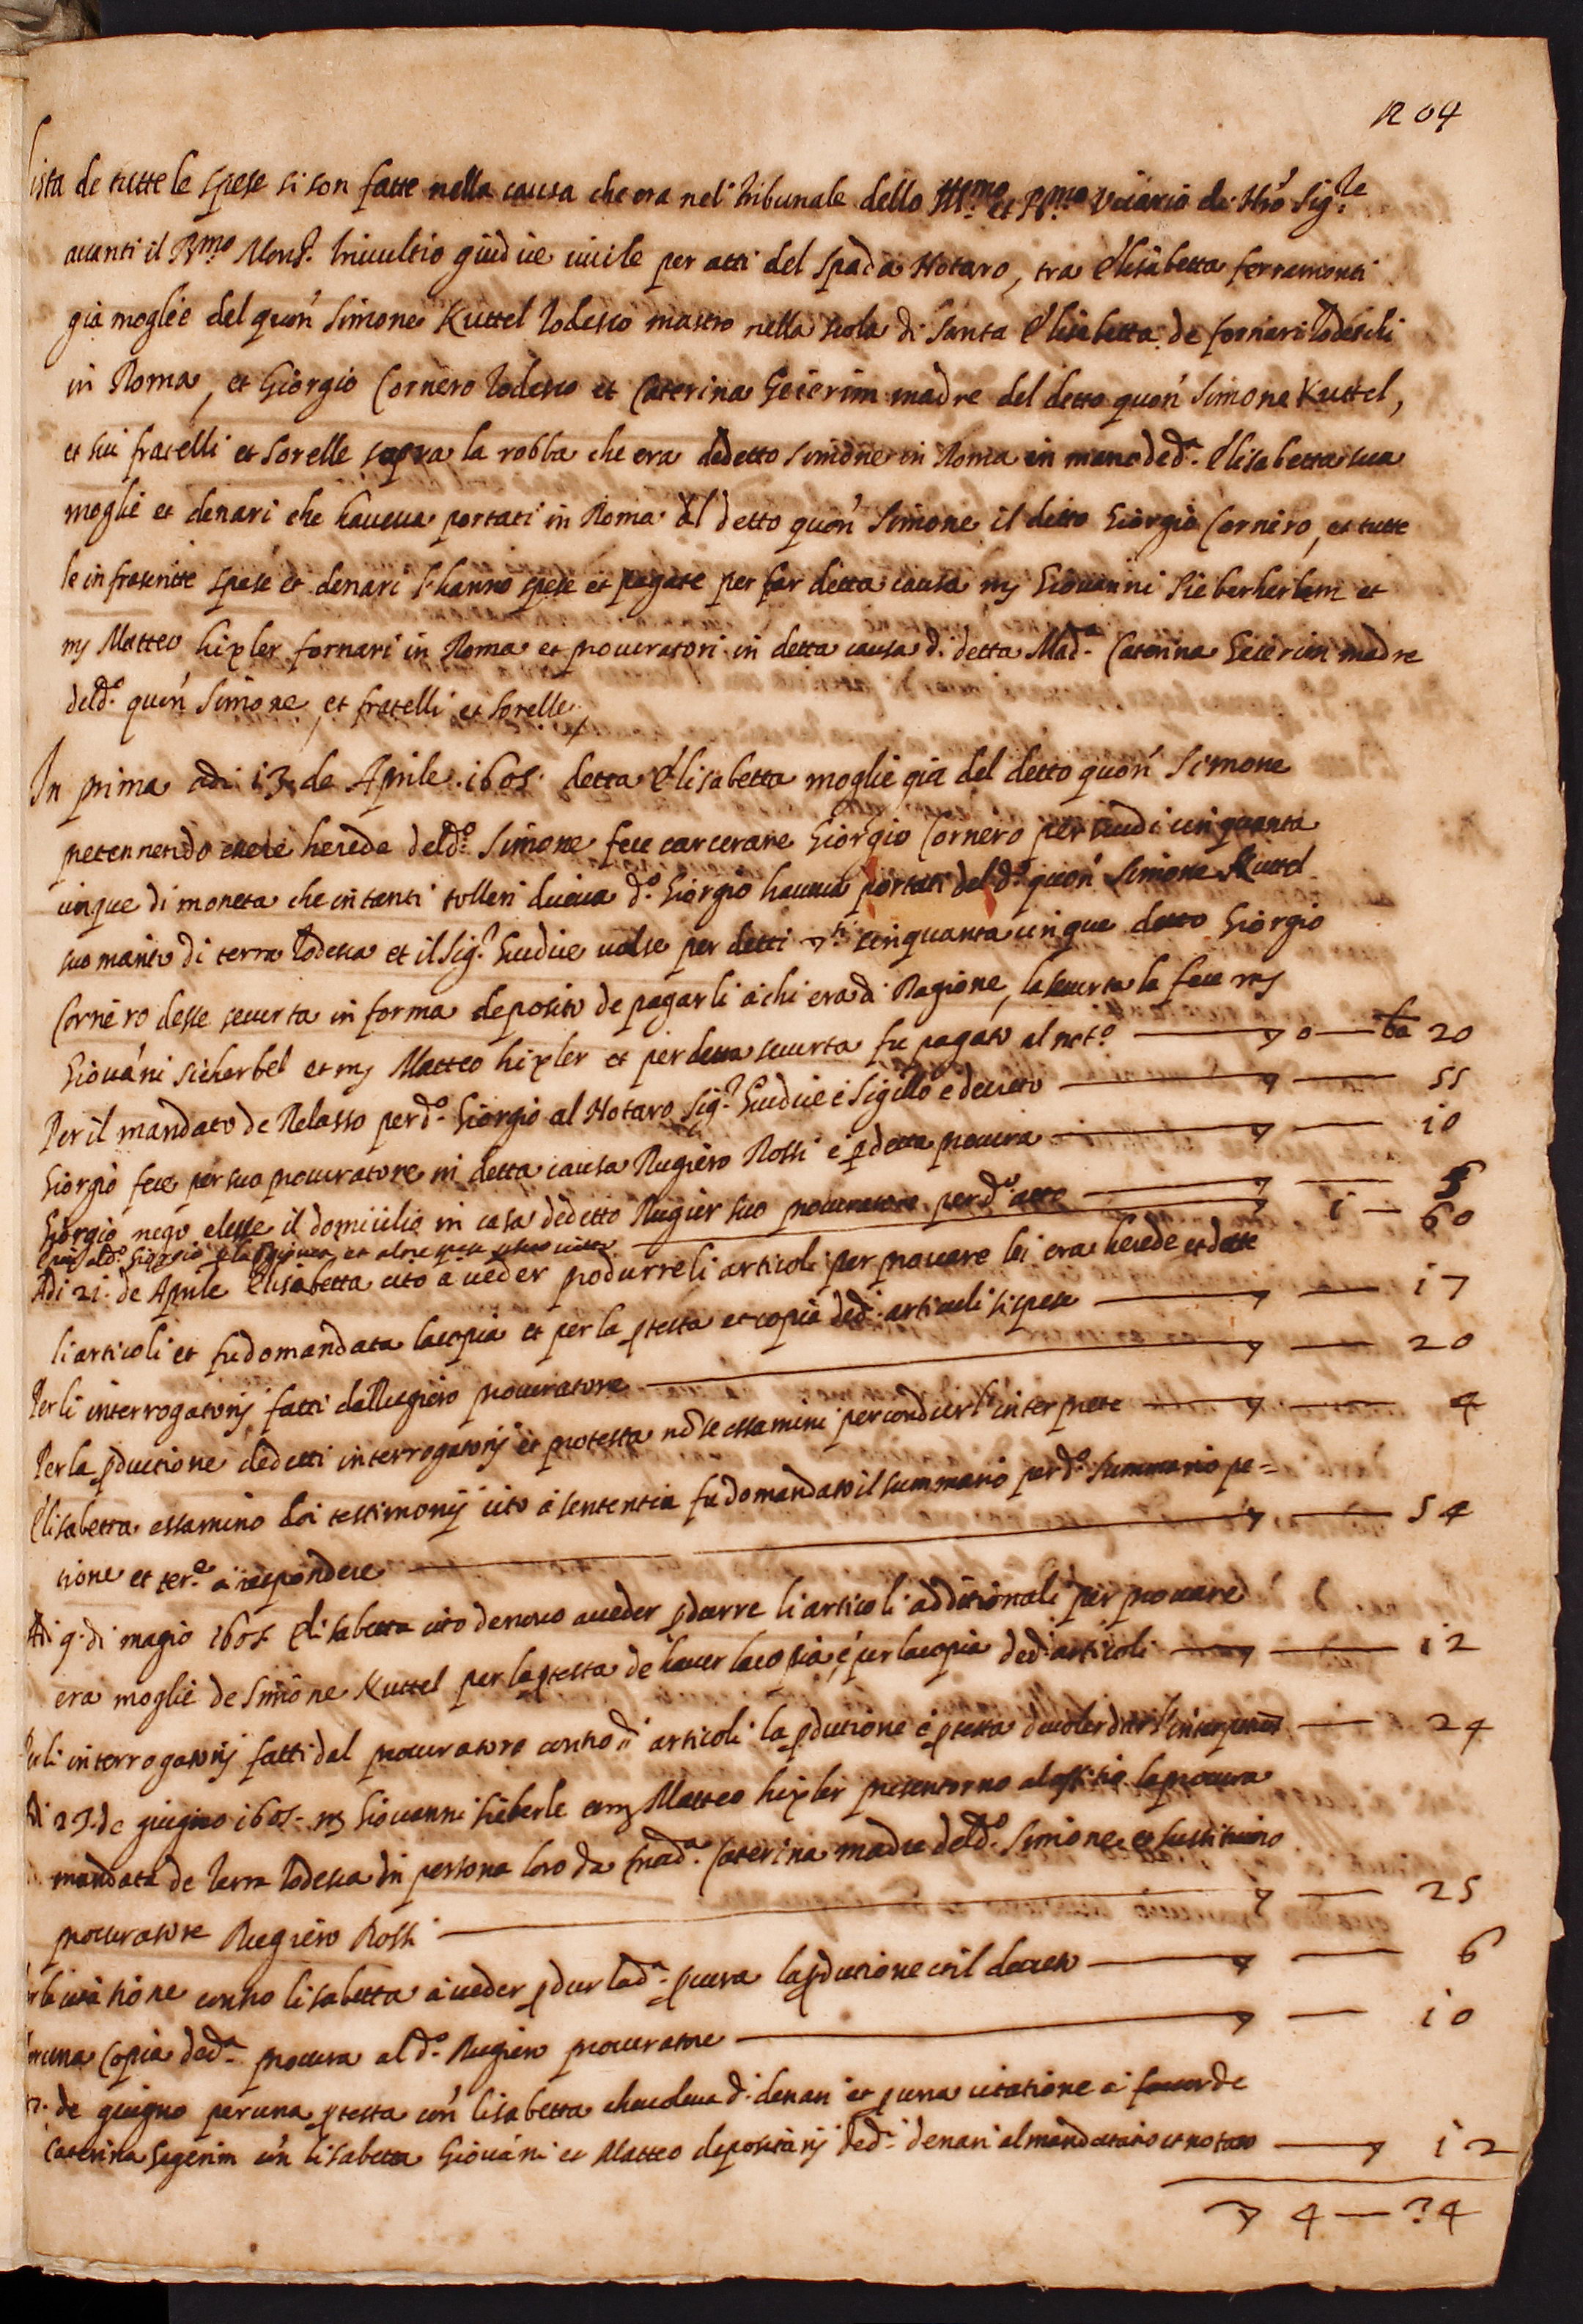 1204
lista de tutte le spese si son fatte nella causa che era nel Tribunale dello Ill.mo et R.mo Vicario de Nrõ Sig.re
auanti il R.mo Mons.r Triuultio giudice ciuile per atti del Spada Notaro, tra Elisabetta ferramonti
già moglie del quon Simone Kuttel Todesco mastro nella scola di Santa Elisabetta de fornari Todeschi
in Roma, et Giorgio Cornero Todesco et Caterina Geierim madre del detto quon Simone Kuttel,
et sui fratelli et sorelle sopra la robba che era dedetto Simone in Roma in mano ded.a Elisabetta sua
moglie et denari che haueua portati in Roma al detto quon Simone il detto Giorgio Cornero, et tutte
le infrascritte spese et denari s'hanno spese et pagate per far detta causa mj Giouanni Sieberherlem et
mj Matteo hixler fornari in Roma et procuratori in detta causa di detta Mad.a Caterina Geierim madre
deld.o quon Simone, et fratelli et sorelle,
In prima adi 13 de Aprile .1605. detta Elisabetta moglie gia del detto quon Simone
pretennendo essere herede deld.o Simone fece carcerare Giorgio Cornero per scudi cinquanta
cinque di moneta che in tanti tolleri diceua d.o Giorgio haueua portati del d.o quon Simone Kuttel
suo marito di terra Todesca et il Sig.r Giudice uolse per detti cinquanta cinque detto Giorgio
Cornero desse securta in forma deposito de pagarli à chi era di Ragione, la securta la fece mj
Giouãni Sieherbel et mj Matteo hixler et per detta securta fu pagato al not.o — 0 — ba 20
Per il mandato de Relasso per d.o Giorgio al Notaro Sig.r Giudice è Sigillo è decreto — 55
Giorgio fece per suo procuratore in detta causa Rugiero Rossi è p detta procura — 10
Giorgio negò elesse il domicilio in casa dedetto Rugier suo procuratore per d.o atto — 5
1 — 60
Adi 21. de Aprile Elisabetta citò à ueder produrre li articoli per prouare lei era herede et dette
li articoli et fu domandata la copia et per la ptesta et copia ded.i articoli si spese — 17
Per li interrogatorij fatti dal Rugiero procuratore — 20
Per la pductione dedetti interrogatorij et protesta nõ se essamini per condur l'interprete — 4
Elisabetta essamino doi testimonij citò à sententia fu domandato il summario per d.o summario pe=
tione et ter.e à rispondere — 54
Adi 9. di magio 1605 Elisabetta citò denouo à ueder pdurre li articoli additionali per prouare
era moglie de Simone Kuttel per la ptesta de hauer la copia, è per la copia ded.i articoli — 12
Per li interrogatorij fatti dal procuratore contro d.i articoli la pductione è ptesta de uoler dar l'interprete — 24
Adi 23. de giugno 1605. mj Giouanni Sieberle et mj Matteo hixler presentorno al offitio la procura
mandata de terra Todesca in persona loro da mad.a Caterina madre deld.o Simone, et sustituirno
procuratore Rugiero Rossi — 25
Per la citatione contro lisabetta à ueder pdur la d.a pcura la pductione et il decreto — 6
Per una Copia ded.a procura al d.o Rugiero procuratore — 10
de giugno per una ptesta con lisabetta d.i denari et p una citatione à fauor de
Caterina Segerim con lisabetta Giouãni et Matteo depositarij ded.i denari al mandatario et notaro — 12
4 — 34